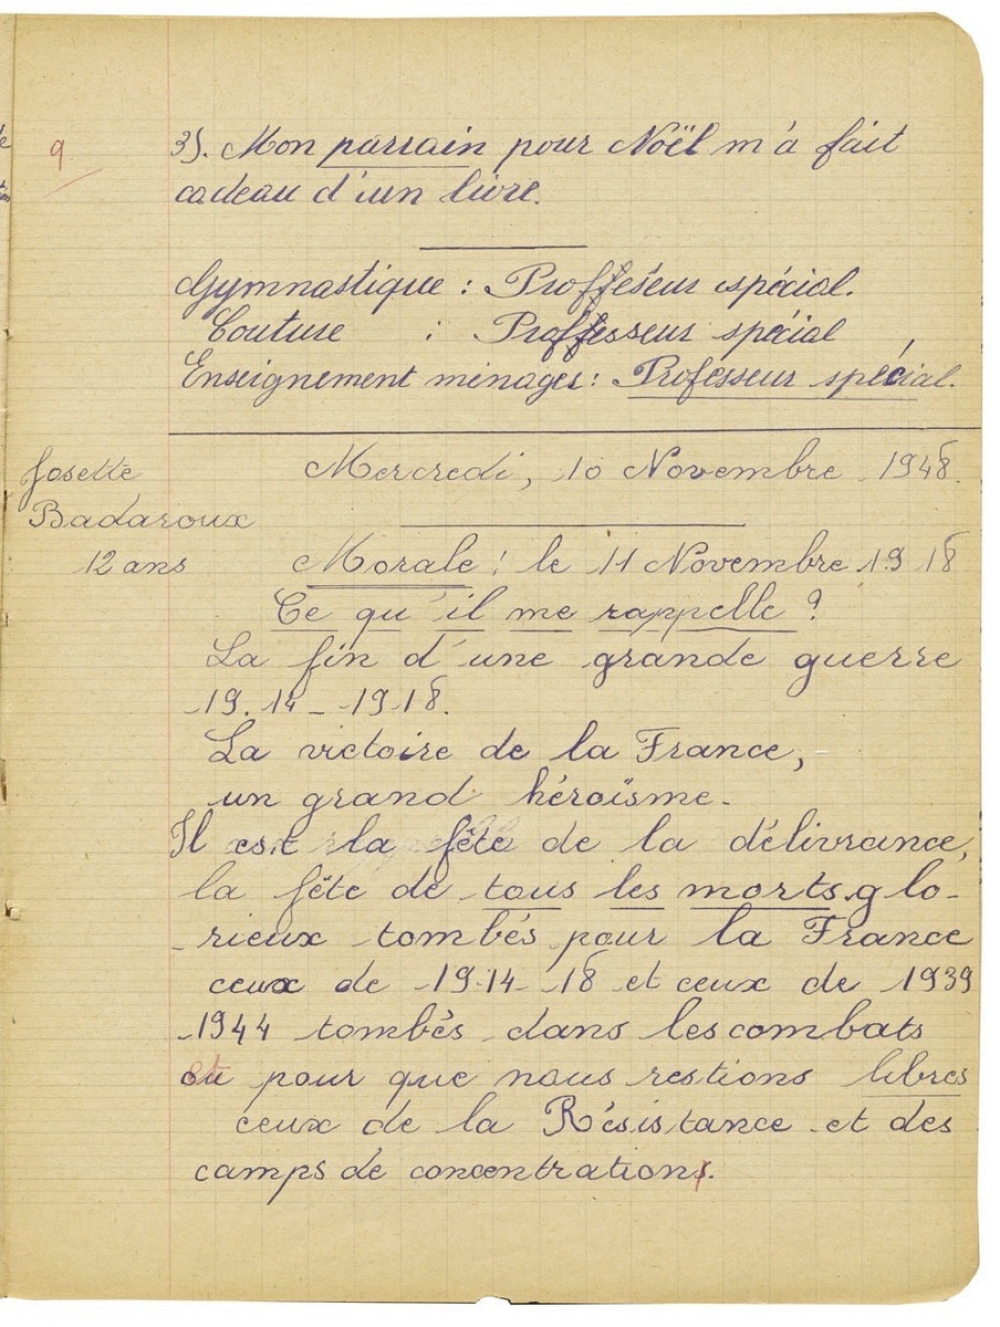 9
3). Mon parrain pour Noël m'a fait
cadeau d'un livre.
Gymnastique : Proffeseur spécial.
Couture : Proffesseur spécial
Enseignement ménages : Professeur spécial.
Josette
Badaroux
12 ans
Mercredi, 10 Novembre 1948.
Morale : le 11 Novembre 1918
Ce qu'il me rappelle ?
La fin d'une grande guerre
1914 - 1918.
La victoire de la France,
un grand héroïsme.
Il est la fête de la délivrance,
la fête de tous les morts glo-
rieux tombés pour la France
ceux de 1914-18 et ceux de 1939
1944 tombés dans les combats
ou pour que nous restions libres
ceux de la Résistance et des
camps de concentrations.